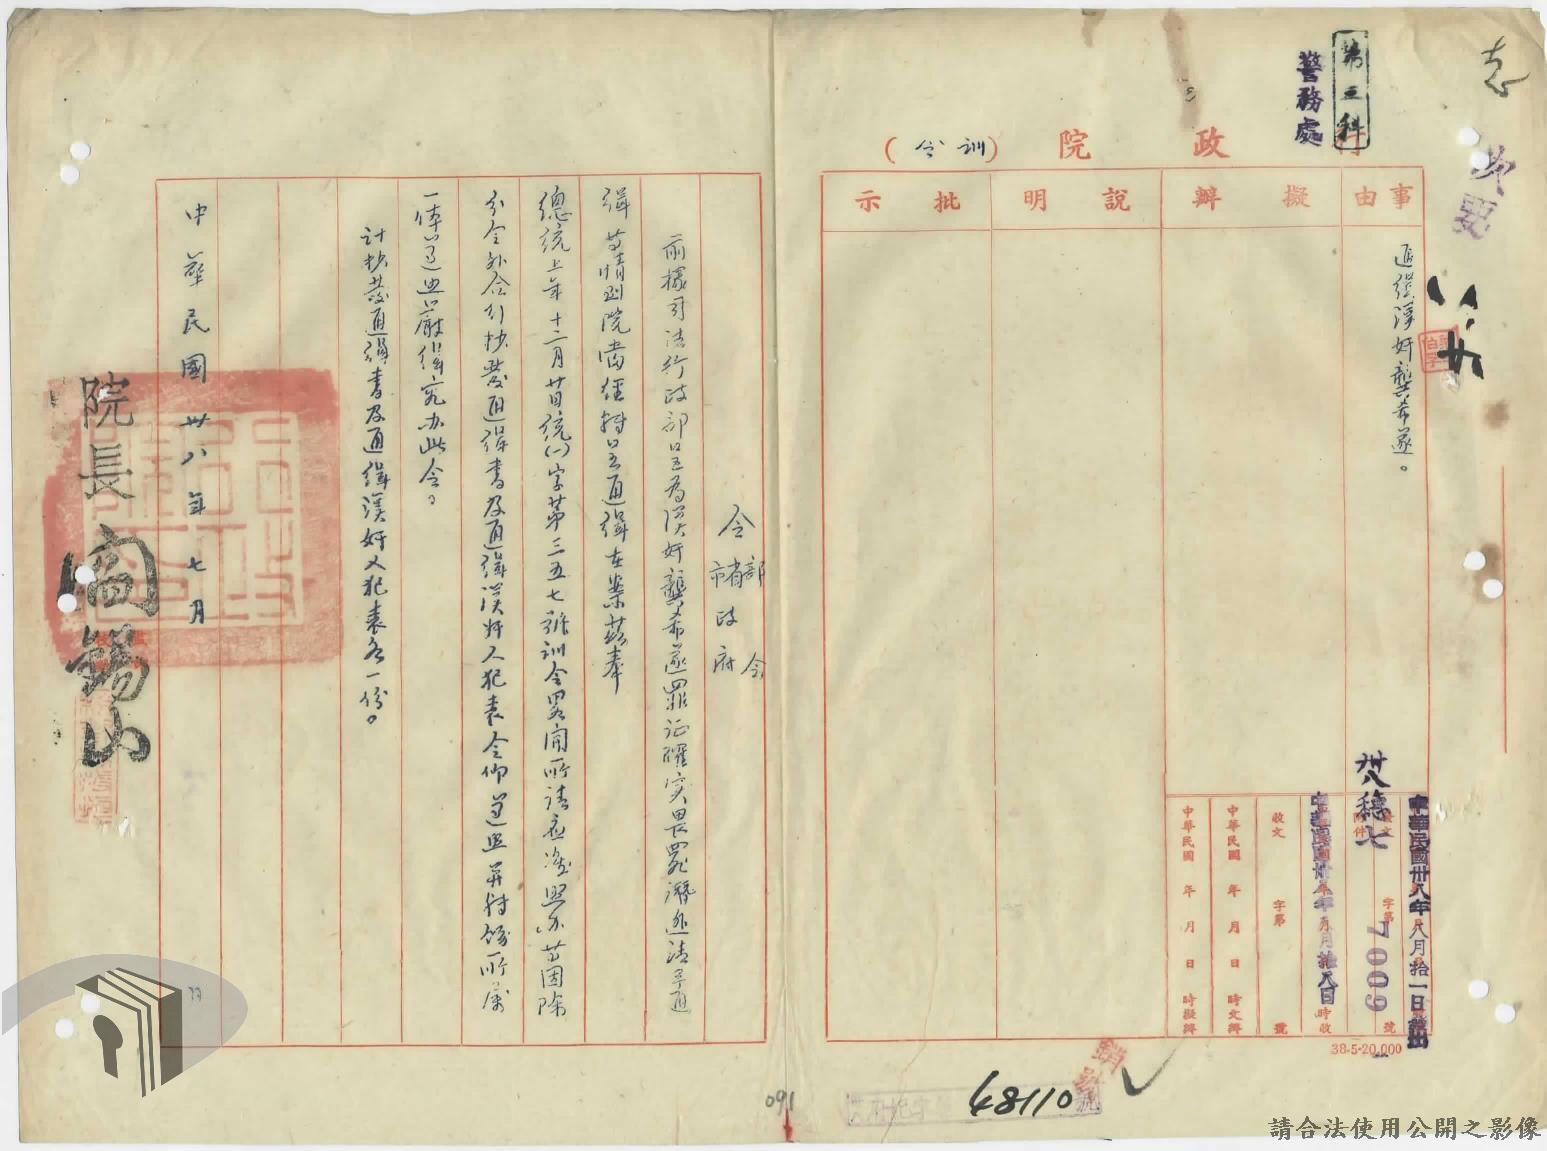 第三科
警務處
行政院（訓令）
事由
擬辦
說明
批示
通緝漢奸龔希遂。
中華民國卅八年八月拾一日發出
卅八穗七
字第7009號
附件
收文 字第 號
中華民國 年 月 日 時文辦
中華民國 年 月 日 時擬辦
38-5-20,000
令 部 會
省市政府
前據司法行政部呈為漢奸龔希遂罪證確實畏罪潛逃請予通
緝等情到院當經轉呈通緝在案茲奉
總統上年十二月廿日統㈠字第三五七號訓令畧開所請應准照办等因除
分令外合行抄發通緝書及通緝漢奸人犯表令仰遵照並轉飭所屬
一体遵照嚴緝究办此令。
計抄發通緝書及通緝漢奸人犯表各一份。
中華民國卅八年七月
院長閻錫山
48110
091
請合法使用公開之影像